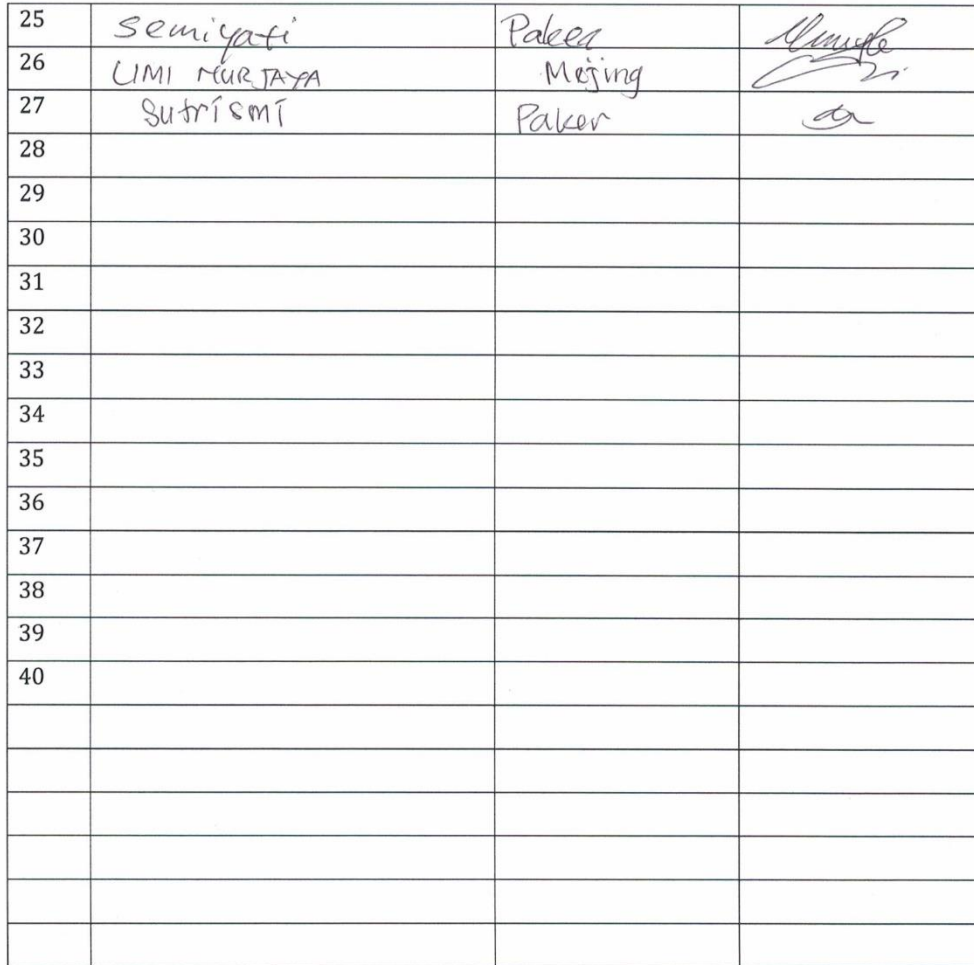 25 Semiyati Paker
26 UMI NURJAYA Mejing
27 Sutrismi Paker
28
29
30
31
32
33
34
35
36
37
38
39
40